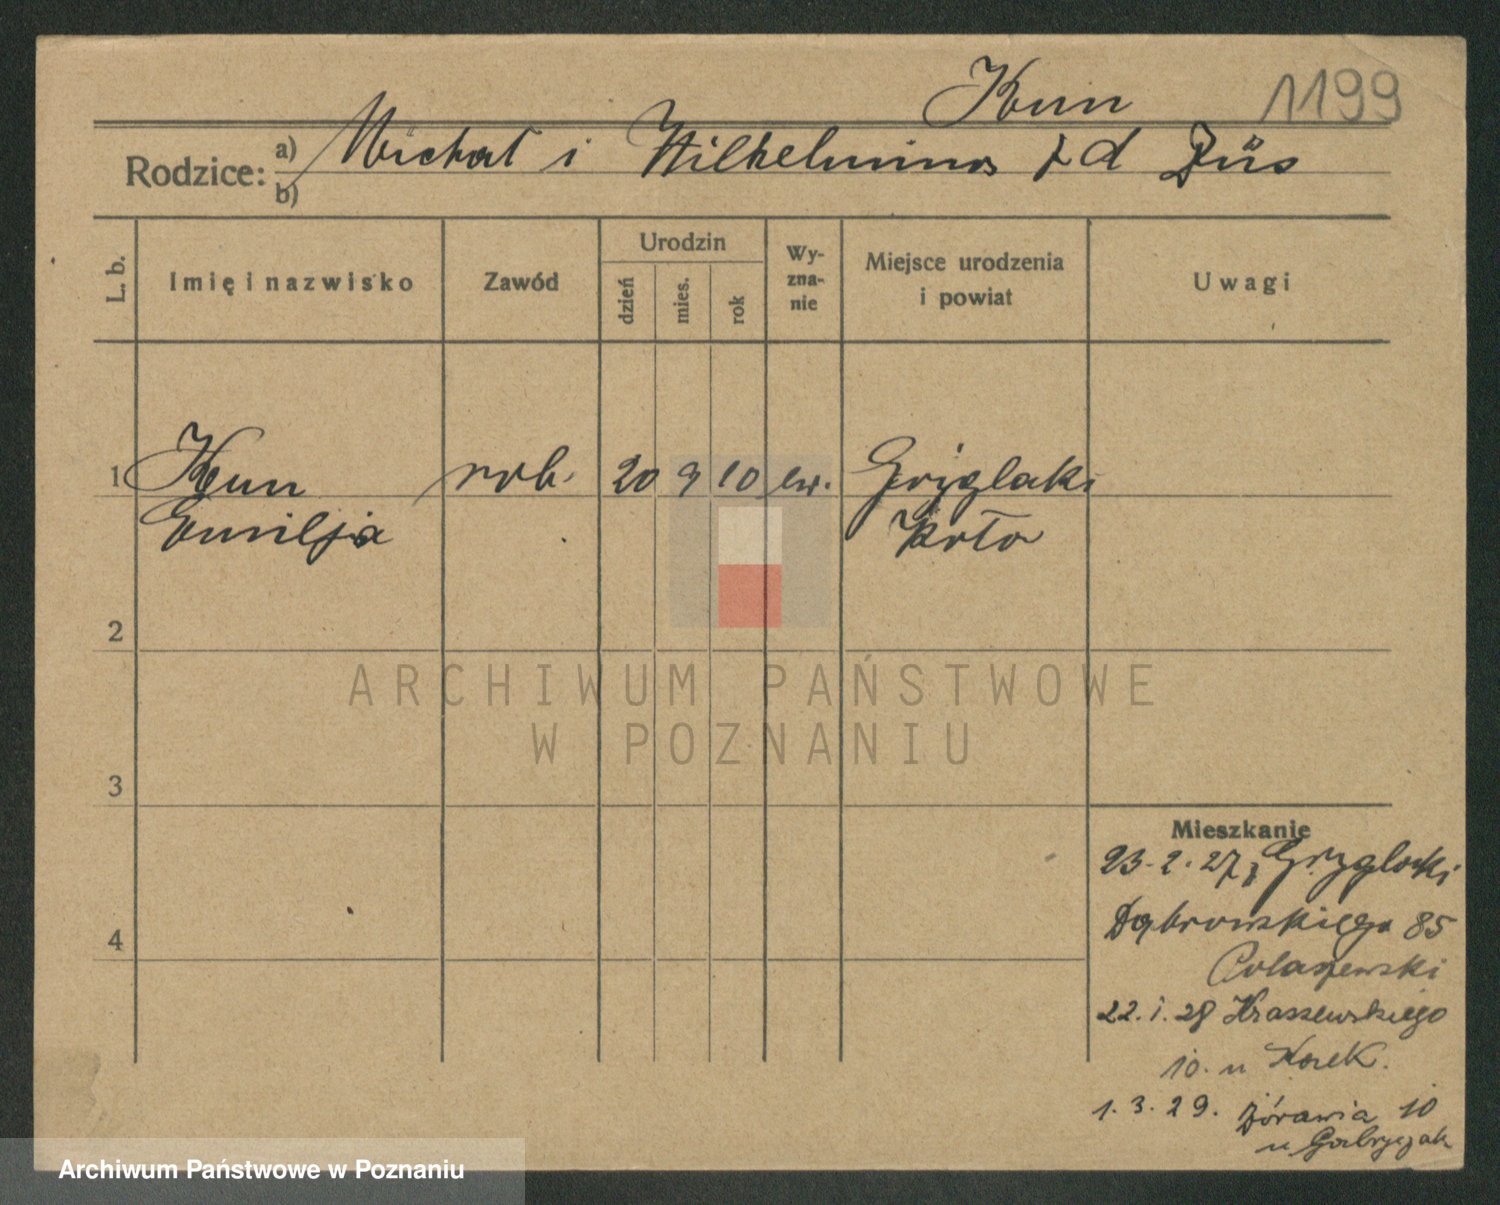 Kun 1199
Rodzice: a) Michał i Wilhelmina z d Düs
b)
L. b. Imię i nazwisko Zawód Urodzin dzień mies. rok Wy-zna-nie Miejsce urodzenia i powiat Uwagi
1 Kun rob. 20 9 10 ew. Gryglaki
Emilja Koło
2
ARCHIWUM PAŃSTWOWE
W POZNANIU
3
Mieszkanie
23.2.27 z Gryglaki
4 Dąbrowskiego 85
22.1.28 Kraszewskiego
10. u
1.3.29. Żórawia 10
u Gabryszak
Archiwum Państwowe w Poznaniu